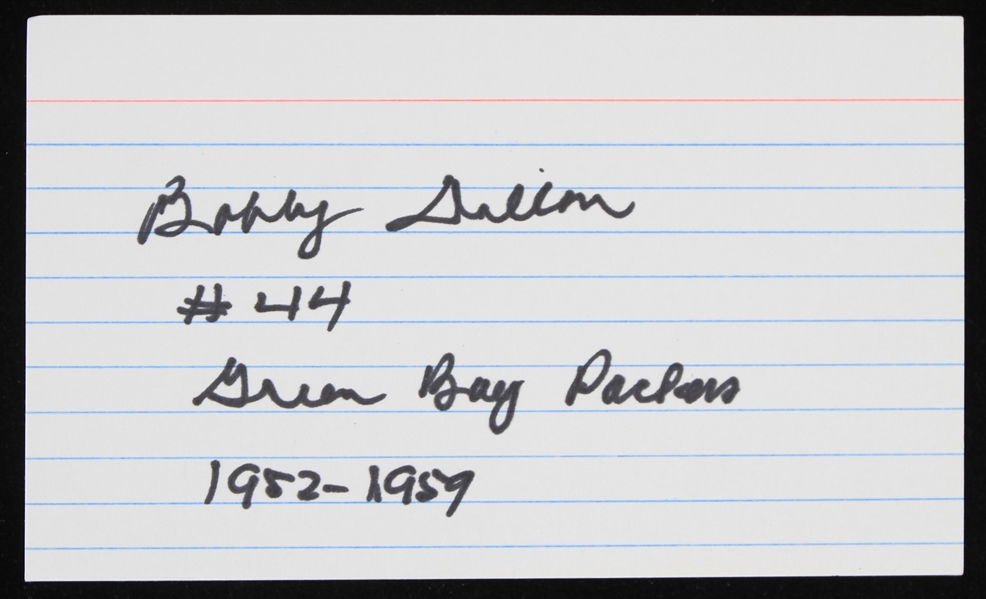 Bobby Dillon
# 44
Green Bay Packers
1952-1959